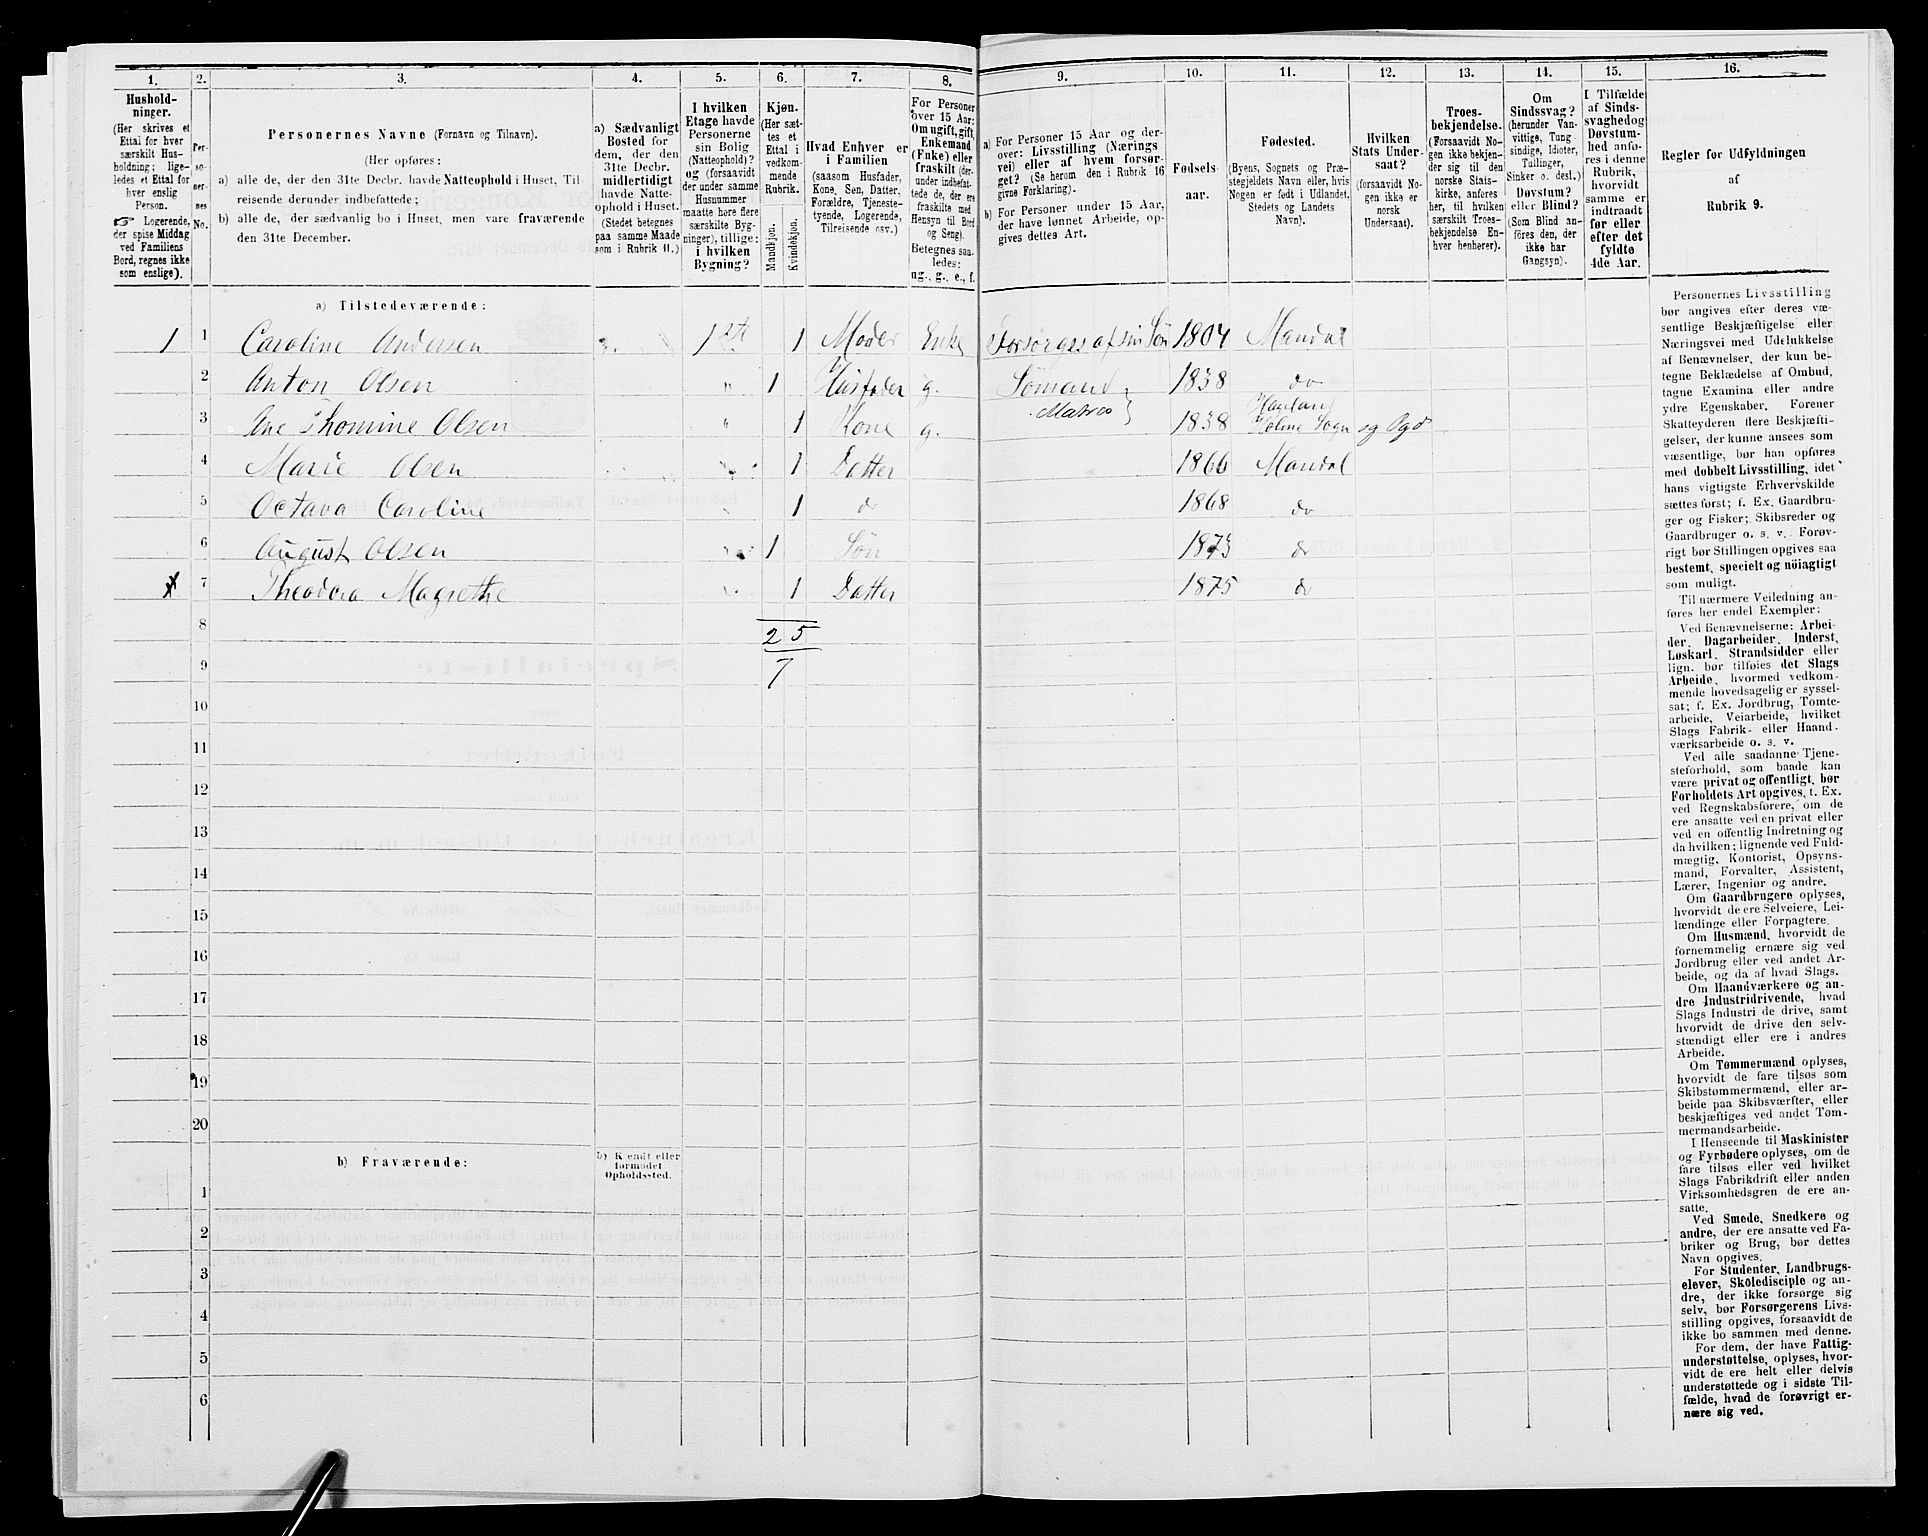 1. 2. 3. 4. 5. 6. 7. 8.
Hushold-
ninger.
(Her skrives et
Ettal for hver
særskilt Hus-
holdning; lige-
ledes et Ettal for
hver enslig
Person.
☞ Logerende,
der spise Middag
ved Familiens
Bord, regnes ikke
som enslige).
Per-
so-
ner-
nes
No.
Personernes Navne (Fornavn og Tilnavn).
(Her opføres:
a) alle de, der den 31te Decbr. havde Natteophold i Huset, Til-
reisende derunder indbefattede;
b) alle de, der sædvanlig bo i Huset, men vare fraværende
den 31te December.
a) Sædvanligt
Bosted for
dem, der den
31te Decbr.
midlertidigt
havde Natte-
ophold i Huset.
(Stedet betegnes
paa samme Maade
som i Rubrik 11.)
I hvilken
Etage havde
Personerne
sin Bolig
(Natteophold)?
og (forsaavidt
der under samme
Husnummer
maatte høre flere
særskilte Byg-
ninger), tillige:
i hvilken
Bygning?
Kjøn.
(Her sæt-
tes et
Ettal i
vedkom-
mende
Rubrik.
Mandkjøn.
Kvindekjøn.
Hvad Enhver er
i Familien
(saasom Husfader,
Kone, Søn, Datter,
Forældre, Tjeneste-
tyende, Logerende,
Tilreisende osv.)
For Personer
over 15 Aar:
Om ugift, gift,
Enkemand
(Enke) eller
fraskilt (der-
under indbefat-
tede de, der ere
fraskilte med
Hensyn til Bord
og Seng).
Betegnes saa-
ledes:
ug., g., e., f.
9. 10. 11. 12. 13. 14. 15. 16.
a) For Personer 15 Aar og der-
over: Livsstilling (Nærings
vei) eller af hvem forsør-
get? (Se herom den i Rubrik 16
givne Forklaring).
b) For Personer under 15 Aar,
der have lønnet Arbeide, op-
gives dettes Art.
Fødsels-
aar.
Fødested.
(Byens, Sognets og Præ-
stegjeldets Navn eller, hvis
Nogen er født i Udlandet,
Stedets og Landets
Navn).
Hvilken
Stats Under-
saat?
(forsaavidt No-
gen ikke er
norsk
Undersaat).
Troes-
bekjendelse.
(Forsaavidt No-
gen ikke bekjen-
der sig til den
norske Stats-
kirke, anføres
her, til hvilken
særskilt Troes-
bekjendelse En-
hver henhører).
Om
Sindssvag?
(herunder Van-
vittige, Tung-
sindige, Idioter,
Tullinger,
Sinker o. desl.)
Døvstum?
eller Blind?
(Som Blind an-
føres den, der
ikke har
Gangsyn).
I Tilfælde
af Sinds-
svaghed og
Døvstum-
hed anfø-
res i denne
Rubrik,
hvorvidt
samme er
indtraadt
før eller
efter det
fyldte
4de Aar.
Regler for Udfyldningen
af
Rubrik 9.
a) Tilstedeværende:
1 1 Caroline Andersen 1 St 1 Moder Enke Forsørges af sin Søn 1804 Mandal
2 Anton Olsen " 1 Husfader g. Sømand 1838 do
Matros
3 Ane Thomine Olsen " 1 Kone g. 1838 Holme Sogn
4 Marie Olsen " 1 Datter 1866 Mandal
5 Octava Caroline " 1 do 1868 do
6 August Olsen " 1 Søn 1873 do
7 Theodora Magrethe " 1 Datter 1875 do
8 2 5
9 7
10
11
12
13
14
15
16
17
18
19
20
b) Fraværende:
b) Kendt eller
formodet
Opholdssted.
1
2
3
4
5
6
Personernes Livsstilling
bør angives efter deres væ-
sentlige Beskjæftigelse eller
Næringsvei med Udelukkelse
af Benævnelser, der kun be-
tegne Beklædelse af Ombud,
tagne Examina eller andre
ydre Egenskaber. Forener
Skatteyderen flere Beskjæfti-
gelser, der kunne ansees som
væsentlige, bør han opføres
med dobbelt Livsstilling, idet
hans vigtigste Erhvervskilde
sættes først; f. Ex. Gaardbru-
ger og Fisker; Skibsreder og
Gaardbruger o. s. v. Forøv-
rigt bør Stillingen opgives saa
bestemt, specielt og nöiagtigt
som muligt.
Til nærmere Veiledning an-
føres her endel Exempler:
Ved Benævnelserne: Arbei-
der, Dagarbeider, Inderst,
Løskarl, Strandsidder eller
lign. bør tilføies det Slags
Arbeide, hvormed vedkom-
mende hovedsagelig er syssel-
sat; f. Ex. Jordbrug, Tomte-
arbeide, Veiarbeide, hvilket
Slags Fabrik- eller Haand-
værksarbeide o. s. v.
Ved alle saadanne Tjene-
steforhold, som baade kan
være privat og offentligt, bør
Forholdets Art opgives, f. Ex.
ved Regnskabsførere, om de
ere ansatte ved en privat eller
ved en offentlig Indretning og
da hvilken; lignende ved Fuld-
mægtig, Kontorist, Opsyns-
mand, Forvalter, Assistent,
Lærer, Ingeniør og andre.
Om Gaardbrugere oplyses,
hvorvidt de ere Selveiere, Lei-
lændinge eller Forpagtere.
Om Husmænd, hvorvidt de
fornemmelig ernære sig ved
Jordbrug eller ved andet Ar-
beide, og da af hvad Slags.
Om Haandværkere og an-
dre Industridrivende, hvad
Slags Industri de drive, samt
hvorvidt de drive den selv-
stændigt eller ere i andres
Arbeide.
Om Tømmermænd oplyses,
hvorvidt de fare tilsøs som
Skibstømmermænd, eller ar-
beide paa Skibsværfter, eller
beskjæftiges ved andet Tøm-
mermandsarbeide.
I Henseende til Maskinister
og Fyrbødere oplyses, om de
fare tilsøs eller ved hvilket
Slags Fabrikdrift eller anden
Virksomhedsgren de ere an-
satte.
Ved Smede, Snedkere og
andre, der ere ansatte ved Fa-
briker og Brug, bør dettes
Navn opgives.
For Studenter, Landbrugs-
elever, Skoledisciple og an-
dre, der ikke forsørge sig
selv, bør Forsørgerens Livs-
stilling opgives, forsaavidt de
ikke bo sammen med denne.
For dem, der have Fattig-
understøttelse, oplyses, hvor-
vidt de ere helt eller delvis
understøttede og i sidste Til-
fælde, hvad de forøvrigt er-
nære sig ved.